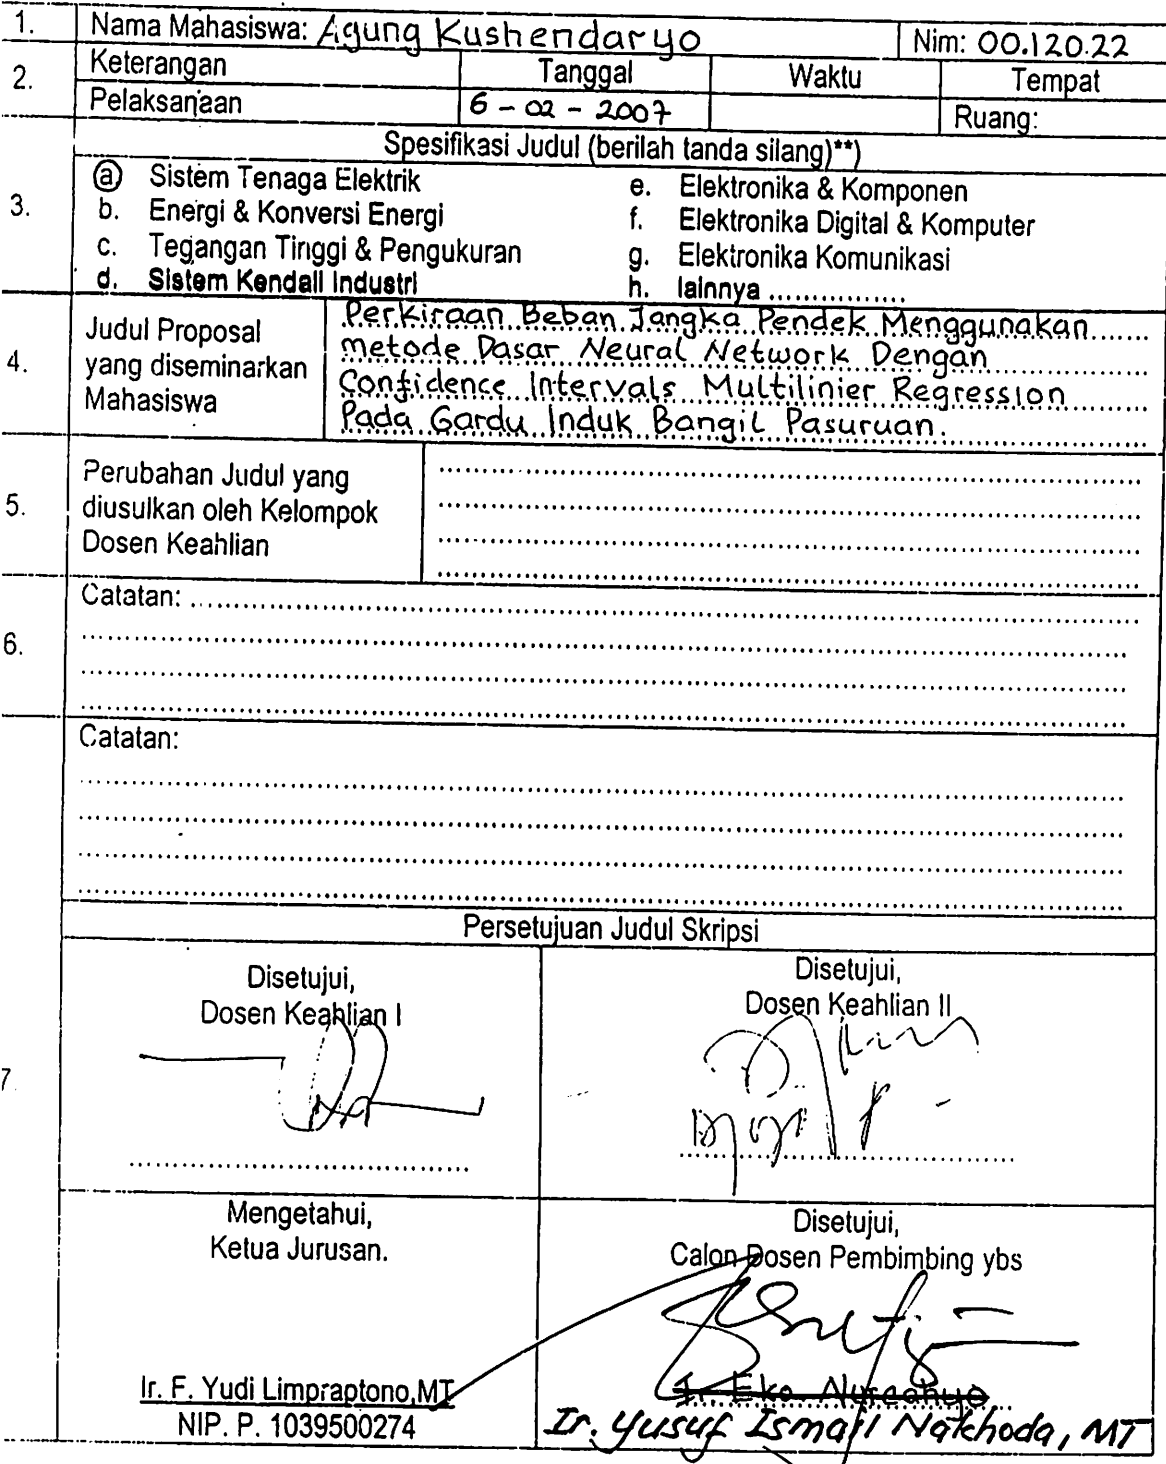 1. Nama Mahasiswa: Agung Kushendaryo Nim: 00.120.22
2. Keterangan Tanggal Waktu Tempat
Pelaksanaan 6 - 02 - 2007 Ruang:
Spesifikasi Judul (berilah tanda silang)**)
3.
a Sistem Tenaga Elektrik e. Elektronika & Komponen
b. Energi & Konversi Energi f. Elektronika Digital & Komputer
c. Tegangan Tinggi & Pengukuran g. Elektronika Komunikasi
d. Sistem Kendali Industri h. lainnya ................
4. Judul Proposal
yang diseminarkan
Mahasiswa
Perkiraan Beban Jangka Pendek Menggunakan
metode Dasar Neural Network Dengan
Confidence Intervals Multilinier Regression
Pada Gardu Induk Bangil Pasuruan.
5. Perubahan Judul yang
diusulkan oleh Kelompok
Dosen Keahlian
6. Catatan:
Catatan:
Persetujuan Judul Skripsi
7.
Disetujui,
Dosen Keahlian I
Disetujui,
Dosen Keahlian II
Mengetahui,
Ketua Jurusan.
Ir. F. Yudi Limpraptono,MT
NIP. P. 1039500274
Disetujui,
Calon Dosen Pembimbing ybs
Ir. Eko Nurcahyo
Ir. Yusuf Ismail Nakhoda, MT